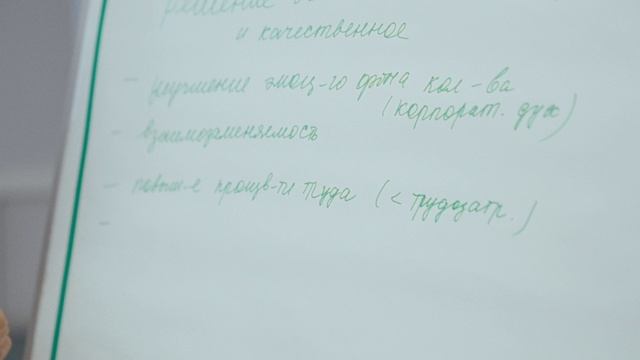 решение
и качественное
- улучшение эмоц-го фона кол-ва
(корпорат. дух)
- взаимозаменяемость
- повыш-е произв-ти труда (< трудозатр.)
-